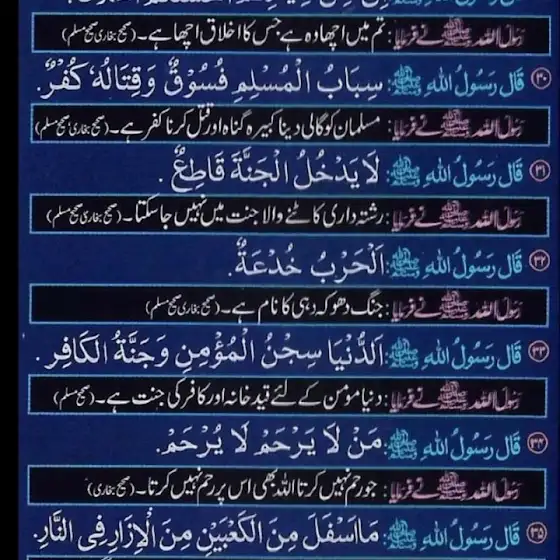 رَسُوْلُ اللہ ﷺ نے فرمایا: تم میں اچھا وہ ہے جس کا اخلاق اچھا ہے۔ (صحیح بخاری صحیح مسلم)
۳۰ قَالَ رَسُوْلُ اللهِ ﷺ: سِبَابُ الْمُسْلِمِ فُسُوْقٌ وَقِتَالُهٗ كُفْرٌ.
رَسُوْلُ اللہ ﷺ نے فرمایا: مسلمان کو گالی دینا کبیرہ گناہ اور قتل کرنا کفر ہے۔ (صحیح بخاری صحیح مسلم)
۳۱ قَالَ رَسُوْلُ اللهِ ﷺ: لَا يَدْخُلُ الْجَنَّةَ قَاطِعٌ.
رَسُوْلُ اللہ ﷺ نے فرمایا: رشتہ داری کاٹنے والا جنت میں نہیں جاسکتا۔ (صحیح بخاری صحیح مسلم)
۳۲ قَالَ رَسُوْلُ اللهِ ﷺ: اَلْحَرْبُ خُدْعَةٌ.
رَسُوْلُ اللہ ﷺ نے فرمایا: جنگ دھوکہ دہی کا نام ہے۔ (صحیح بخاری صحیح مسلم)
۳۳ قَالَ رَسُوْلُ اللهِ ﷺ: اَلدُّنْيَا سِجْنُ الْمُؤْمِنِ وَجَنَّةُ الْكَافِرِ.
رَسُوْلُ اللہ ﷺ نے فرمایا: دنیا مومن کے لئے قید خانہ اور کافر کی جنت ہے۔ (صحیح مسلم)
۳۴ قَالَ رَسُوْلُ اللهِ ﷺ: مَنْ لَا يَرْحَمْ لَا يُرْحَمْ.
رَسُوْلُ اللہ ﷺ نے فرمایا: جو رحم نہیں کرتا اللہ بھی اس پر رحم نہیں کرتا۔ (صحیح بخاری)
۳۵ قَالَ رَسُوْلُ اللهِ ﷺ: مَا اَسْفَلَ مِنَ الْكَعْبَيْنِ مِنَ الْاِزَارِ فِي النَّارِ.